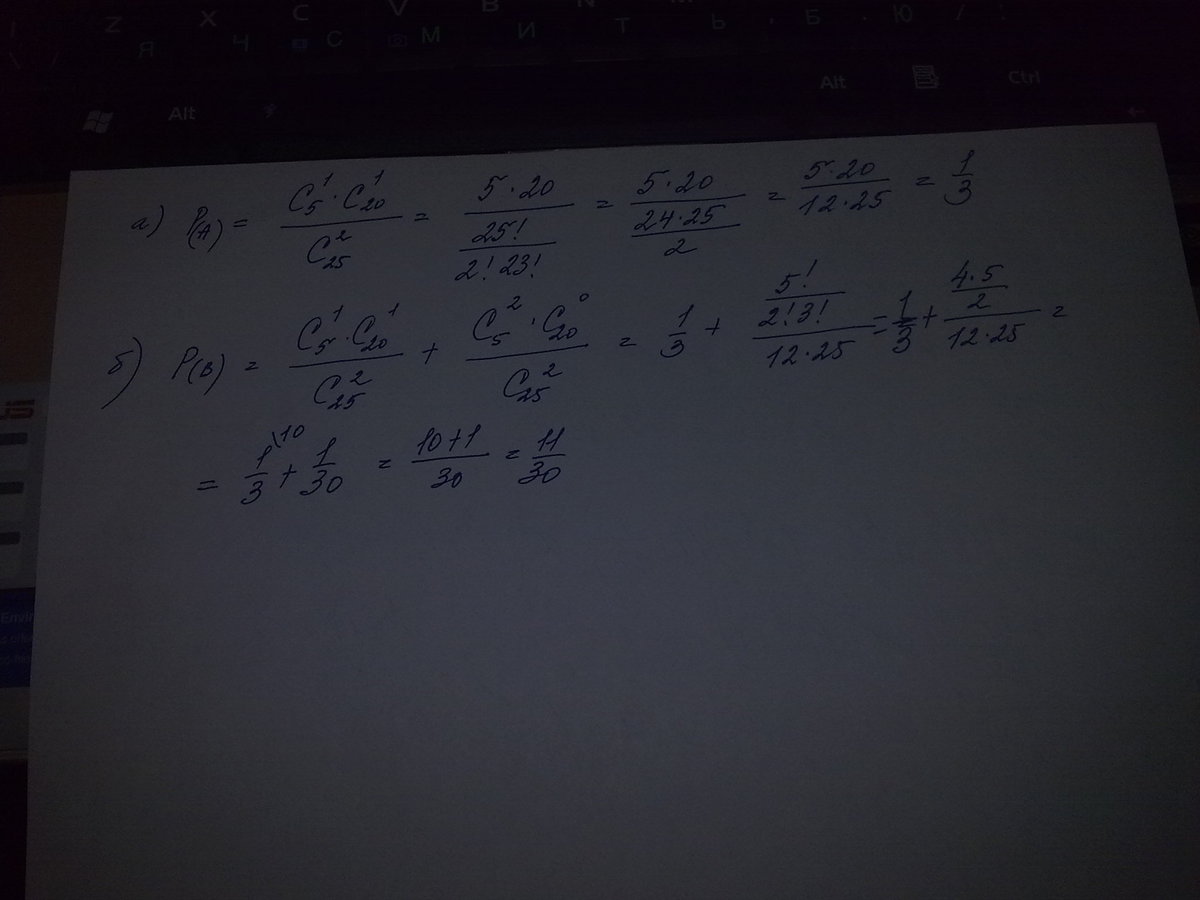 Z X C V B N
Я Ч С М И Т Ь Б Ю
Alt Alt Ctrl
а) P(A) = C₅¹·C₂₀¹/C₂₅² = 5·20/(25!/(2!23!)) = 5·20/(24·25/2) = 5·20/(12·25) = 1/3
б) P(B) = C₅¹·C₂₀¹/C₂₅² + C₅²·C₂₀⁰/C₂₅² = 1/3 + (5!/(2!3!))/(12·25) = 1/3 + (4·5/2)/(12·25) =
= 1\10/3 + 1/30 = (10+1)/30 = 11/30